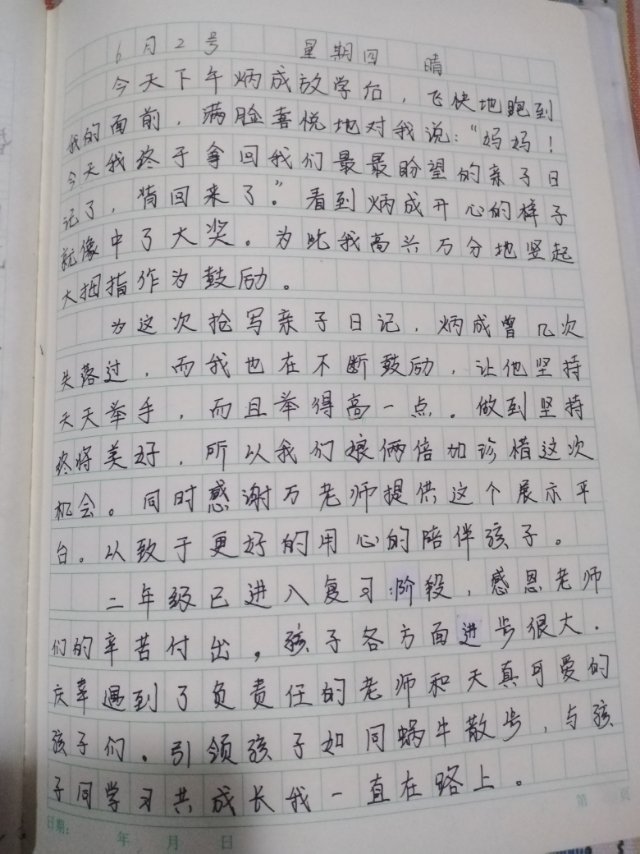 6月2号 星期四 晴
今天下午炳成放学后，飞快地跑到
我的面前，满脸喜悦地对我说："妈妈！
今天我终于拿回我们最最盼望的亲子日
记了，背回来了。"看到炳成开心的样子
就像中了大奖。为此我高兴万分地竖起
大拇指作为鼓励。
为这次抢写亲子日记，炳成曾几次
失落过，而我也在不断鼓励，让他坚持
天天举手，而且举得高一点。做到坚持
终将美好，所以我们娘俩倍加珍惜这次
机会。同时感谢万老师提供这个展示平
台。以致于更好的用心的陪伴孩子。
二年级已进入复习阶段，感恩老师
们的辛苦付出，孩子各方面进步很大.
庆幸遇到了负责任的老师和天真可爱的
孩子们.引领孩子如同蜗牛散步，与孩
子同学习共成长我一直在路上。
第 页
日期： 年 月 日